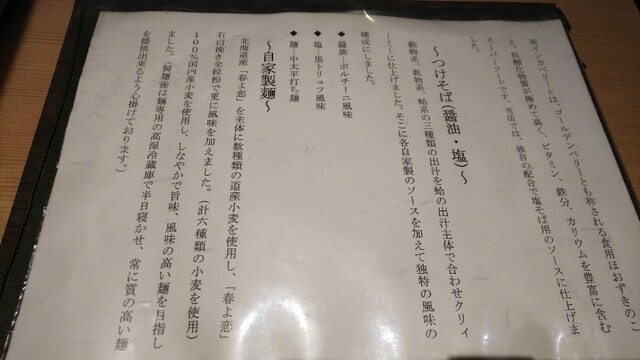 ※インカベリーとは、ゴールデンベリーとも称される食用ほおずきのこ
と。抗酸化物質が極めて高く、ビタミン、鉄分、カリウムを豊富に含む
スーパーフードです。当店では、独自の配合で塩そば用のソースに仕上げま
した。
～つけそば(醤油・塩)～
動物系、乾物系、蛤系の三種類の出汁を蛤の出汁主体で合わせクリィ
ーミーに仕上げました。そこに各自家製のソースを加えて独特の風味の
構成にしました。
◆ 醤油…ポルチーニ風味
◆ 塩…黒トリュフ風味
◆ 麺…中太平打ち麺
～自家製麺～
北海道産「春よ恋」を主体に数種類の道産小麦を使用し、「春よ恋」
石臼挽き全粒粉で更に風味を加えました。(計六種類の小麦を使用)
100%国内産小麦を使用し、しなやかで旨味、風味の高い麺を目指し
ました。(製麺後は麺専用の高湿冷蔵庫で半日寝かせ、常に質の高い麺
を提供出来るよう心掛けております。)